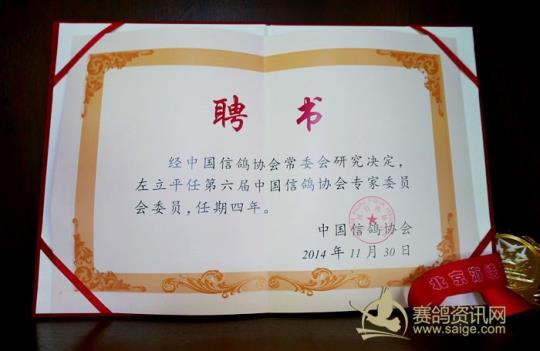 聘书
经中国信鸽协会常委会研究决定,
左立平任第六届中国信鸽协会专家委员
会委员,任期四年。
中国信鸽协会
2014年11月30日
北京
赛鸽资讯网
www.saige.com